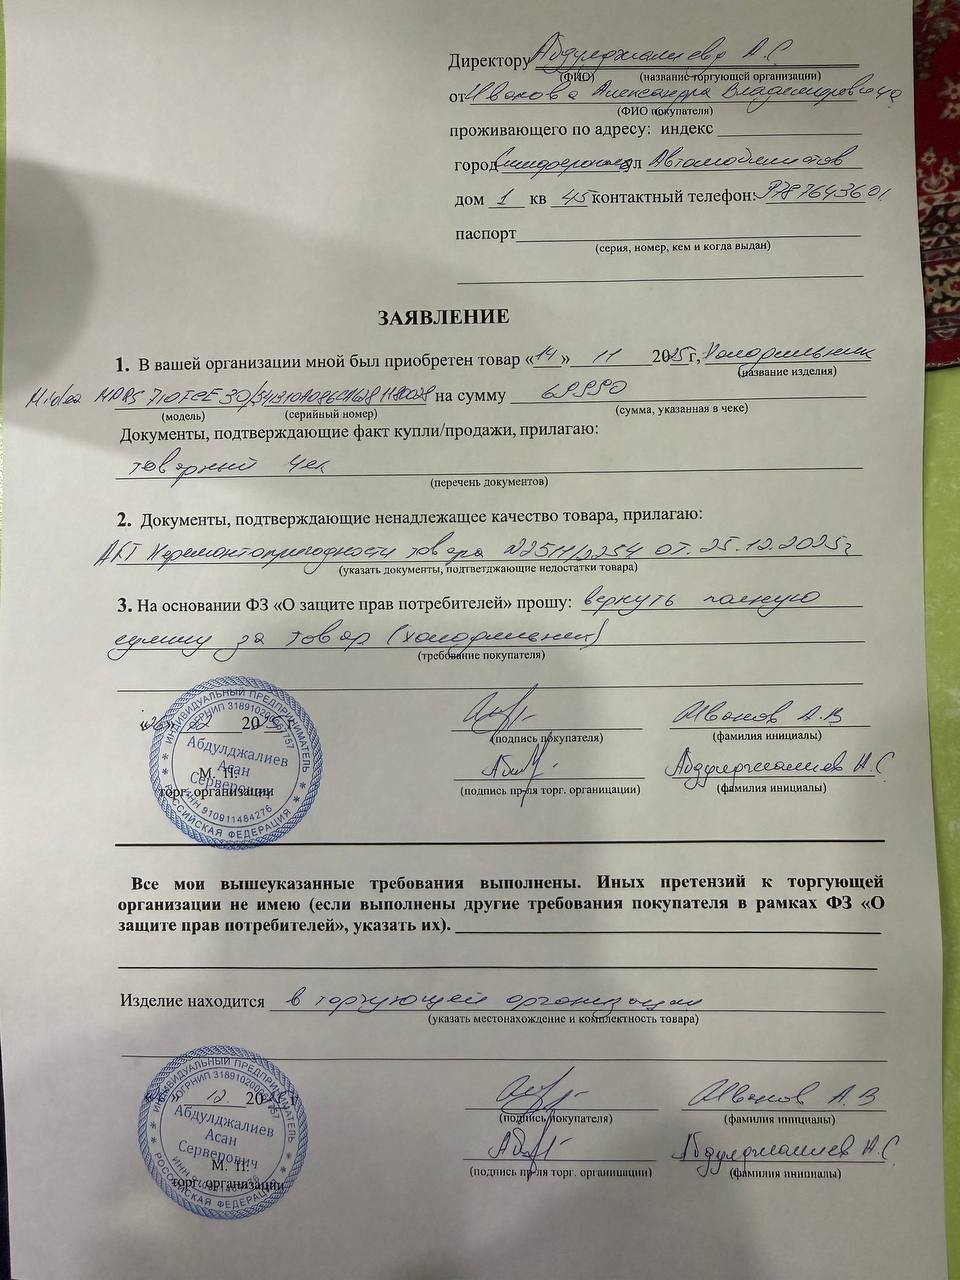 Директору Абдулджалиеву А.С
(ФИО) (название торгующей организации)
от Иванова Александра Владимировича
(ФИО покупателя)
проживающего по адресу: индекс
город ул Автомобилистов
дом 1 кв 45 контактный телефон:
паспорт
(серия, номер, кем и когда выдан)
ЗАЯВЛЕНИЕ
1. В вашей организации мной был приобретен товар «14» 11 2025г, Холодильник
(название изделия)
Midea на сумму 69990
(модель) (серийный номер) (сумма, указанная в чеке)
Документы, подтверждающие факт купли/продажи, прилагаю:
товарный чек
(перечень документов)
2. Документы, подтверждающие ненадлежащее качество товара, прилагаю:
АКТ Неремонтопригодности товара от. 25.12.2025г
(указать документы, подтветджающие недостатки товара)
3. На основании ФЗ «О защите прав потребителей» прошу: вернуть полную
сумму за товар (холодильник)
(требование покупателя)
20 г
(подпись покупателя) Иванов А.В
(фамилия инициалы)
М. П.
торг. организации
(подпись пр-ля торг. органицации) Абдулджалиев А.С
(фамилия инициалы)
ИНДИВИДУАЛЬНЫЙ ПРЕДПРИНИМАТЕЛЬ
Абдулджалиев
Асан
Серверович
ИНН 910811484276
РОССИЙСКАЯ ФЕДЕРАЦИЯ
Все мои вышеуказанные требования выполнены. Иных претензий к торгующей
организации не имею (если выполнены другие требования покупателя в рамках ФЗ «О
защите прав потребителей», указать их).
Изделие находится в торгующей организации
(указать местонахождение и комплектность товара)
12. 20 г
(подпись покупателя) Иванов А.В
(фамилия инициалы)
М. П.
торг. организации
(подпись пр-ля торг. органицации) Абдулджалиев А.С
(фамилия инициалы)
ИНДИВИДУАЛЬНЫЙ ПРЕДПРИНИМАТЕЛЬ
Абдулджалиев
Асан
Серверович
РОССИЙСКАЯ ФЕДЕРАЦИЯ